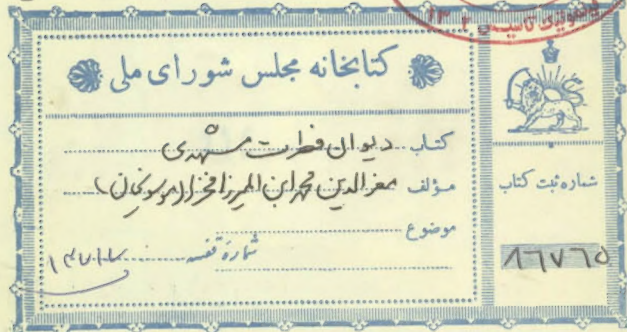 کتابخانه مجلس شورای ملی
کتاب دیوان فطرت مشهدی
مؤلف معزالدین محمد ابن المیرزا فخرا (موسویخان)
موضوع
شماره قفسه ۱۳۷۱۲
شماره ثبت کتاب
۸۶۷۶۵